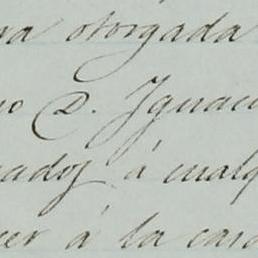 ra otorgada
no D. Ignaci
cados á cualq
cer á la caro